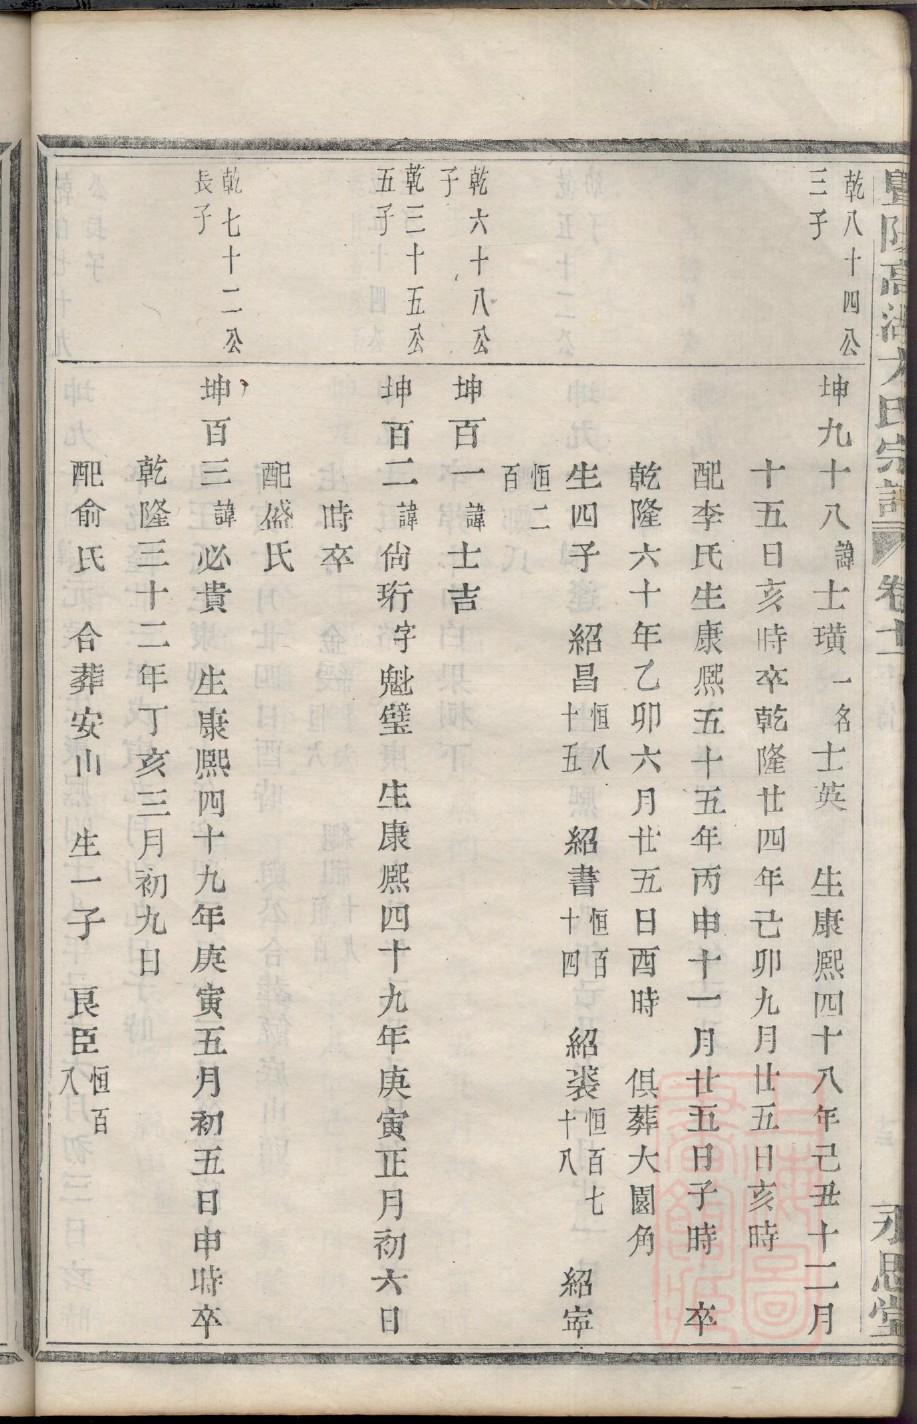 暨陽高湖方氏宗譜 卷十二 永思堂
乾八十四公
三子
坤九十八 諱 士璜 一名 士英 生康熙四十八年己丑十二月
十五日亥時卒乾隆廿四年己卯九月廿五日亥時
配李氏生康熙五十五年丙申十一月廿五日子時 卒
乾隆六十年乙卯六月廿五日酉時 俱葬大園角
生四子 紹昌 恒八十五 紹書 恒百十四 紹裘 恒百七十八 紹寜
恒二百
乾六十八公
子
坤百一 諱 士吉
乾三十五公
五子
坤百二 諱 尙珩 字 魁璧 生康熙四十九年庚寅正月初六日
時卒
配盛氏
乾七十二公
長子
坤百三 諱 必貴 生康熙四十九年庚寅五月初五日申時卒
乾隆三十二年丁亥三月初九日
配俞氏 合葬安山 生一子 良臣 恒百八